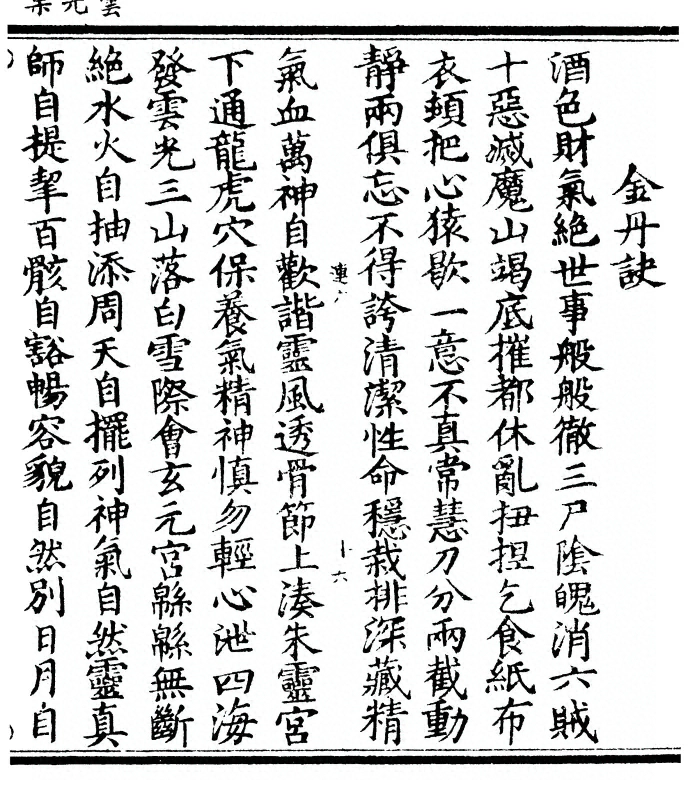 金丹訣
酒色財氣絕世事般般徹三尸陰魄消六賊
十惡滅魔山竭底摧都休亂扭捏乞食紙布
衣頓把心猿歇一意不真常慧刀分兩截動
靜兩俱忘不得誇清潔性命穩栽排深藏精
連六
卜六
氣血萬神自歡諧靈風透骨節上湊朱靈宮
下通龍虎穴保養氣精神慎勿輕心泄四海
發雲光三山落白雪際會玄元宮緜緜無斷
絕水火自抽添周天自擺列神氣自然靈真
師自提挈百骸自豁暢容貌自然別日月自